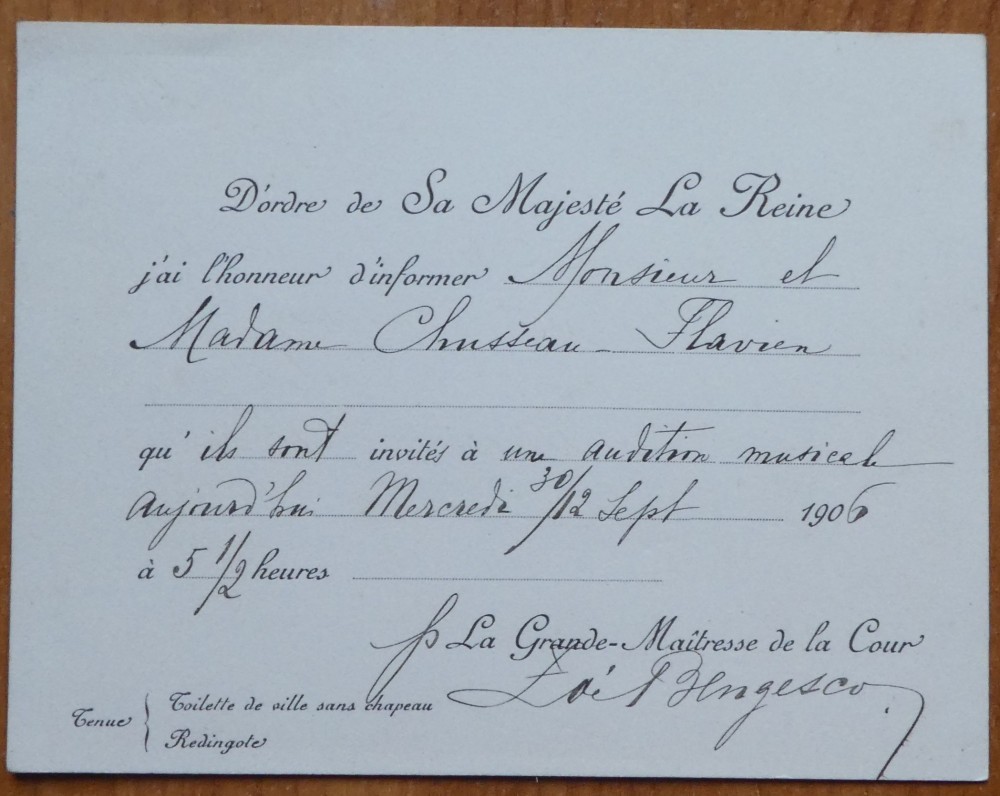 D'ordre de Sa Majesté La Reine
j'ai l'honneur d'informer Monsieur et
Madame Chusseau-Flavien
qu'ils sont invités à une audition musicale
aujourd'hui Mercredi 30/12 Sept 1906
à 5 1/2 heures
p La Grande-Maîtresse de la Cour
Zoé Bengesco
Tenue { Toilette de ville sans chapeau
Redingote